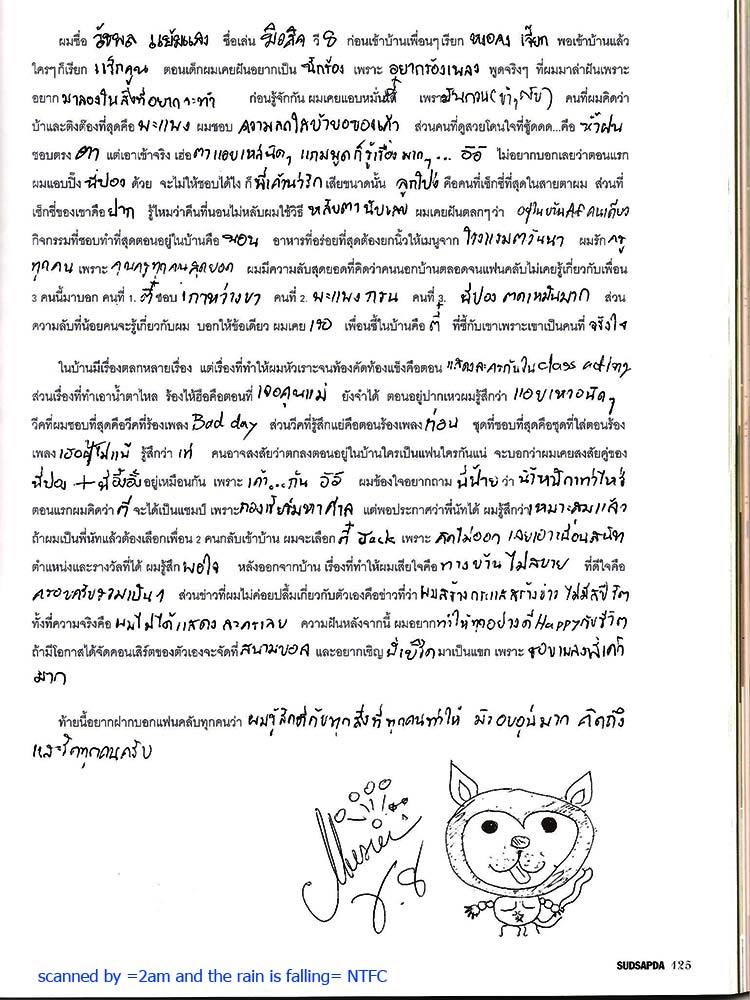 ผมชื่อ วัชพล แย้มแสง ชื่อเล่น มิวสิค วี 8 ก่อนเข้าบ้านเพื่อนๆเรียก พอเข้าบ้านแล้ว
ใครๆก็เรียก ตอนเด็กผมเคยฝันอยากเป็น นักร้อง เพราะ อยากร้องเพลง พูดจริงๆ ที่ผมมาล่าฝันเพราะ
อยาก มาลองในสิ่งที่อยากจะทำ ก่อนรู้จักกัน ผมเคยแอบหมั่นไส้ ตี๋ เพราะ มันกวน คนที่ผมคิดว่า
บ้าและติงต๊องที่สุดคือ พะแพง ผมชอบ ความสดใสบ้ายอของเค้า ส่วนคนที่ดูสวยโดนใจที่ซู้ดดด...คือ
ชอบตรง ตา แต่เอาเข้าจริง เธอ ตาแอบเหล่นิดๆ แถมพูดก็รู้เรื่องมากๆ... อิอิ ไม่อยากบอกเลยว่าตอนแรก
ผมแอบปิ๊ง พี่ปอง ด้วย จะไม่ให้ชอบได้ไง ก็ พี่เค้าน่ารัก เสียขนาดนั้น ลูกโป่ง คือคนที่เซ็กซี่ที่สุดในสายตาผม ส่วนที่
เซ็กซี่ของเขาคือ ปาก รู้ไหมว่าคืนที่นอนไม่หลับผมใช้วิธี หลับตานับเลข ผมเคยฝันตลกๆว่า อยู่ในบ้านAFคนเดียว
กิจกรรมที่ชอบทำที่สุดตอนอยู่ในบ้านคือ นอน อาหารที่อร่อยที่สุดต้องยกนิ้วให้เมนูจาก โรงแรมตวันนา ผมรัก ครู
ทุกคน เพราะ คุณครูทุกคนสุดยอด ผมมีความลับสุดยอดที่คิดว่าคนนอกบ้านตลอดจนแฟนคลับไม่เคยรู้เกี่ยวกับเพื่อน
3 คนนี้มาบอก คนที่ 1. ตี๋ ชอบเกาหว่างขา คนที่ 2. พะแพง กรน คนที่ 3. พี่ปอง ตดเหม็นมาก ส่วน
ความลับที่น้อยคนจะรู้เกี่ยวกับผม บอกให้ข้อเดียว ผมเคย เพื่อนซี้ในบ้านคือ ตี๋ ที่ซี้กับเขาเพราะเขาเป็นคนที่ จริงใจ
ในบ้านมีเรื่องตลกหลายเรื่อง แต่เรื่องที่ทำให้ผมหัวเราะจนท้องคัดท้องแข็งคือตอน แสดงละครกันใน class acting
ส่วนเรื่องที่ทำเอาน้ำตาไหล ร้องไห้ฮือคือตอนที่ เจอคุณแม่ ยังจำได้ ตอนอยู่ปากเหวผมรู้สึกว่า แอบเหงานิดๆ
วีคที่ผมชอบที่สุดคือวีคที่ร้องเพลง Bad day ส่วนวีคที่รู้สึกแย่คือตอนร้องเพลง ก่อน ชุดที่ชอบที่สุดคือชุดที่ใส่ตอนร้อง
เพลง เธอผู้ไม่แพ้ รู้สึกว่า เท่ คนอาจสงสัยว่าตกลงตอนอยู่ในบ้านใครเป็นแฟนใครกันแน่ จะบอกว่าผมเคยสงสัยคู่ของ
พี่ปอง + พี่อี๊งอิ๊ง อยู่เหมือนกัน เพราะ เค้า...กัน อิอิ ผมข้องใจอยากถาม พี่ฝ้าย ว่า
ตอนแรกผมคิดว่า ตี๋ จะได้เป็นแชมป์ เพราะ กองเชียร์มหาศาล แต่พอประกาศว่าพี่นัทได้ ผมรู้สึกว่า เหมาะสมแล้ว
ถ้าผมเป็นพี่นัทแล้วต้องเลือกเพื่อน 2 คนกลับเข้าบ้าน ผมจะเลือก ตี๋ Jack เพราะ คิดไม่ออก เลยเอาเพื่อนสนิท
ตำแหน่งและรางวัลที่ได้ ผมรู้สึก พอใจ หลังออกจากบ้าน เรื่องที่ทำให้ผมเสียใจคือ ทางบ้านไม่สบาย ที่ดีใจคือ
ครอบครัวรวมเป็น 1 ส่วนข่าวที่ผมไม่ค่อยปลื้มเกี่ยวกับตัวเองคือข่าวที่ว่า ผมสร้างกระแสสร้างข่าว ไม่มีสปิริต
ทั้งที่ความจริงคือ ผมไม่ได้แสดงละครเลย ความฝันหลังจากนี้ ผมอยาก ทำให้ทุกอย่างดี Happyกับชีวิต
ถ้ามีโอกาสได้จัดคอนเสิร์ตของตัวเองจะจัดที่ สนามบอล และอยากเชิญ พี่เบิร์ด มาเป็นแขก เพราะ ชอบเพลงพี่เค้า
มาก
ท้ายนี้อยากฝากบอกแฟนคลับทุกคนว่า ผมรู้สึกดีกับทุกสิ่งที่ทุกคนทำให้ มันอบอุ่นมาก คิดถึง
และรักทุกคนครับ
Music
V.8
SUDSAPDA 125
scanned by =2am and the rain is falling= NTFC